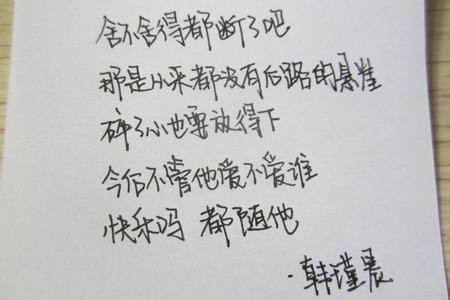 舍不舍得都断了吧
那是从来都没有后路的悬崖
碎了心也要放得下
今后不管他爱不爱谁
快乐吗 都随他
·韩瑾晨